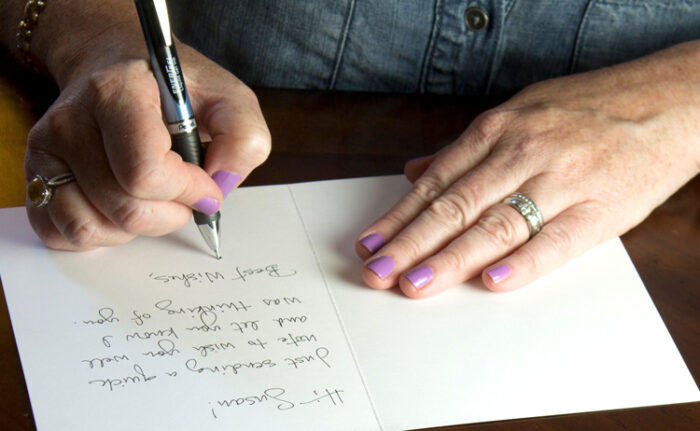 Hi, Susan!
Just sending a quick
note to wish you well
and let you know I
was thinking of you.
Best Wishes,
Pentel